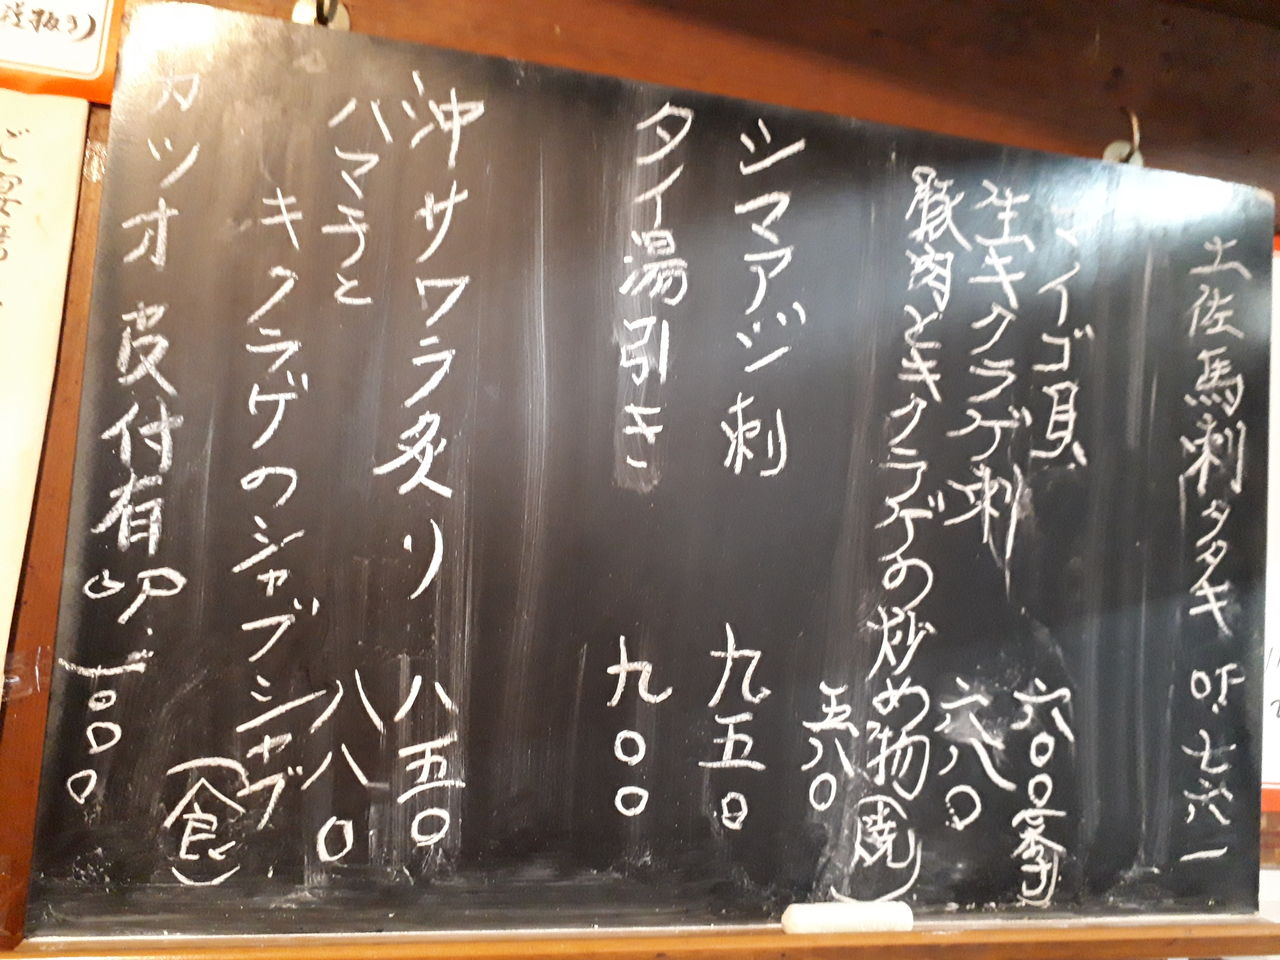 土佐馬刺タタキ
七六一
マイゴ貝 六〇〇
生キクラゲ刺 六八〇
豚肉とキクラゲの炒め物(焼) 五八〇
シマアジ刺 九五〇
タイ湯引き 九〇〇
沖サワラ炙り 八五〇
ハマチと
キクラゲのシャブシャブ(食) 八八〇
カツオ皮付有